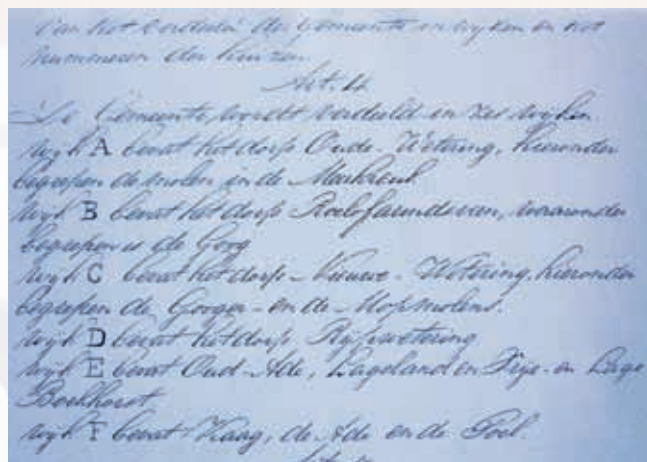 Van het verdeelen der Gemeente in wijken en het
nummeren der huizen.
Art. 4
De Gemeente wordt verdeeld in zes wijken
wijk A bevat het dorp Oude-Wetering, hieronder
begrepen de molen in de
wijk B bevat het dorp Roelofarendsveen, waaronder
begrepen is de Goog
wijk C bevat het dorp Nieuwe-Wetering, hieronder
begrepen de Googer- en de Mopmolens.
wijk D bevat het dorp Rijpwetering
wijk E bevat Oud-Ade, Lageland en Vrije- en Lage
Boekhorst
wijk F bevat Kaag, de Ade en de Poel.